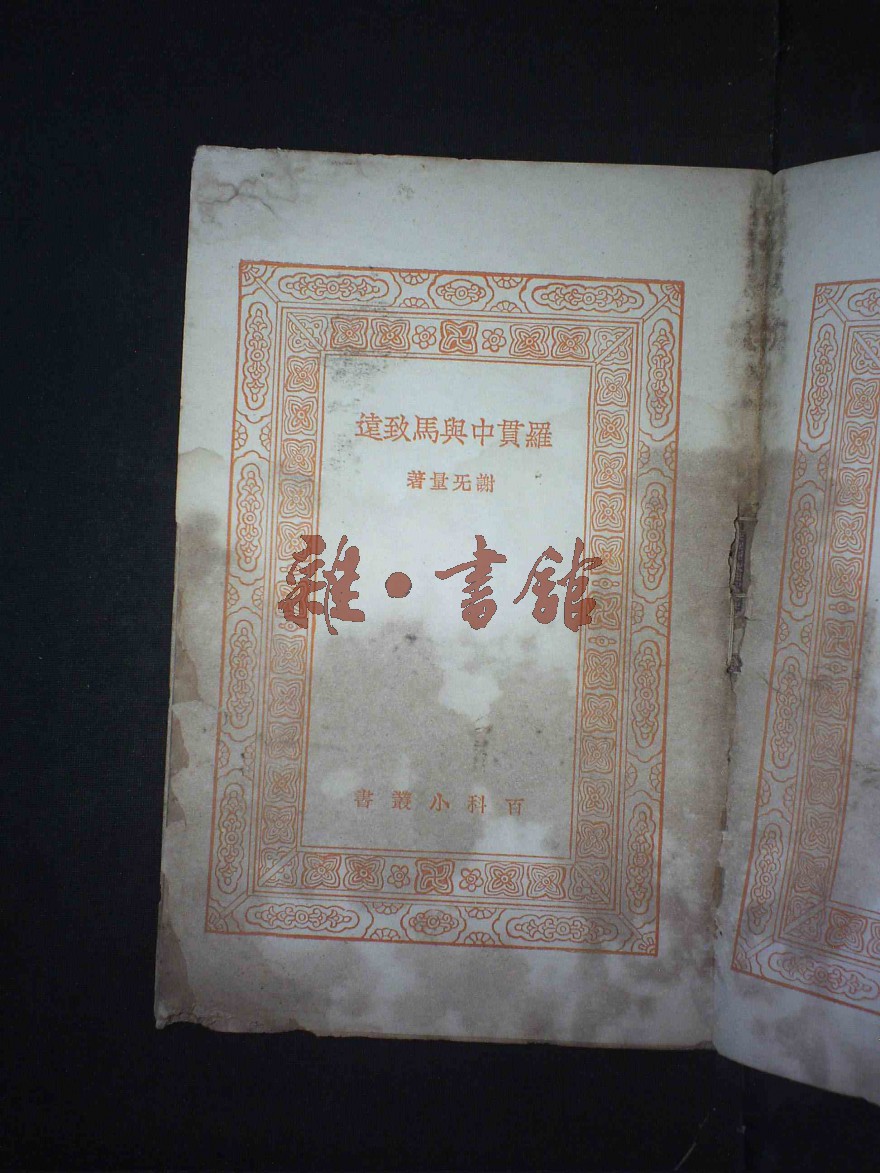 羅貫中與馬致遠
謝无量著
雜·書館
百科小叢書